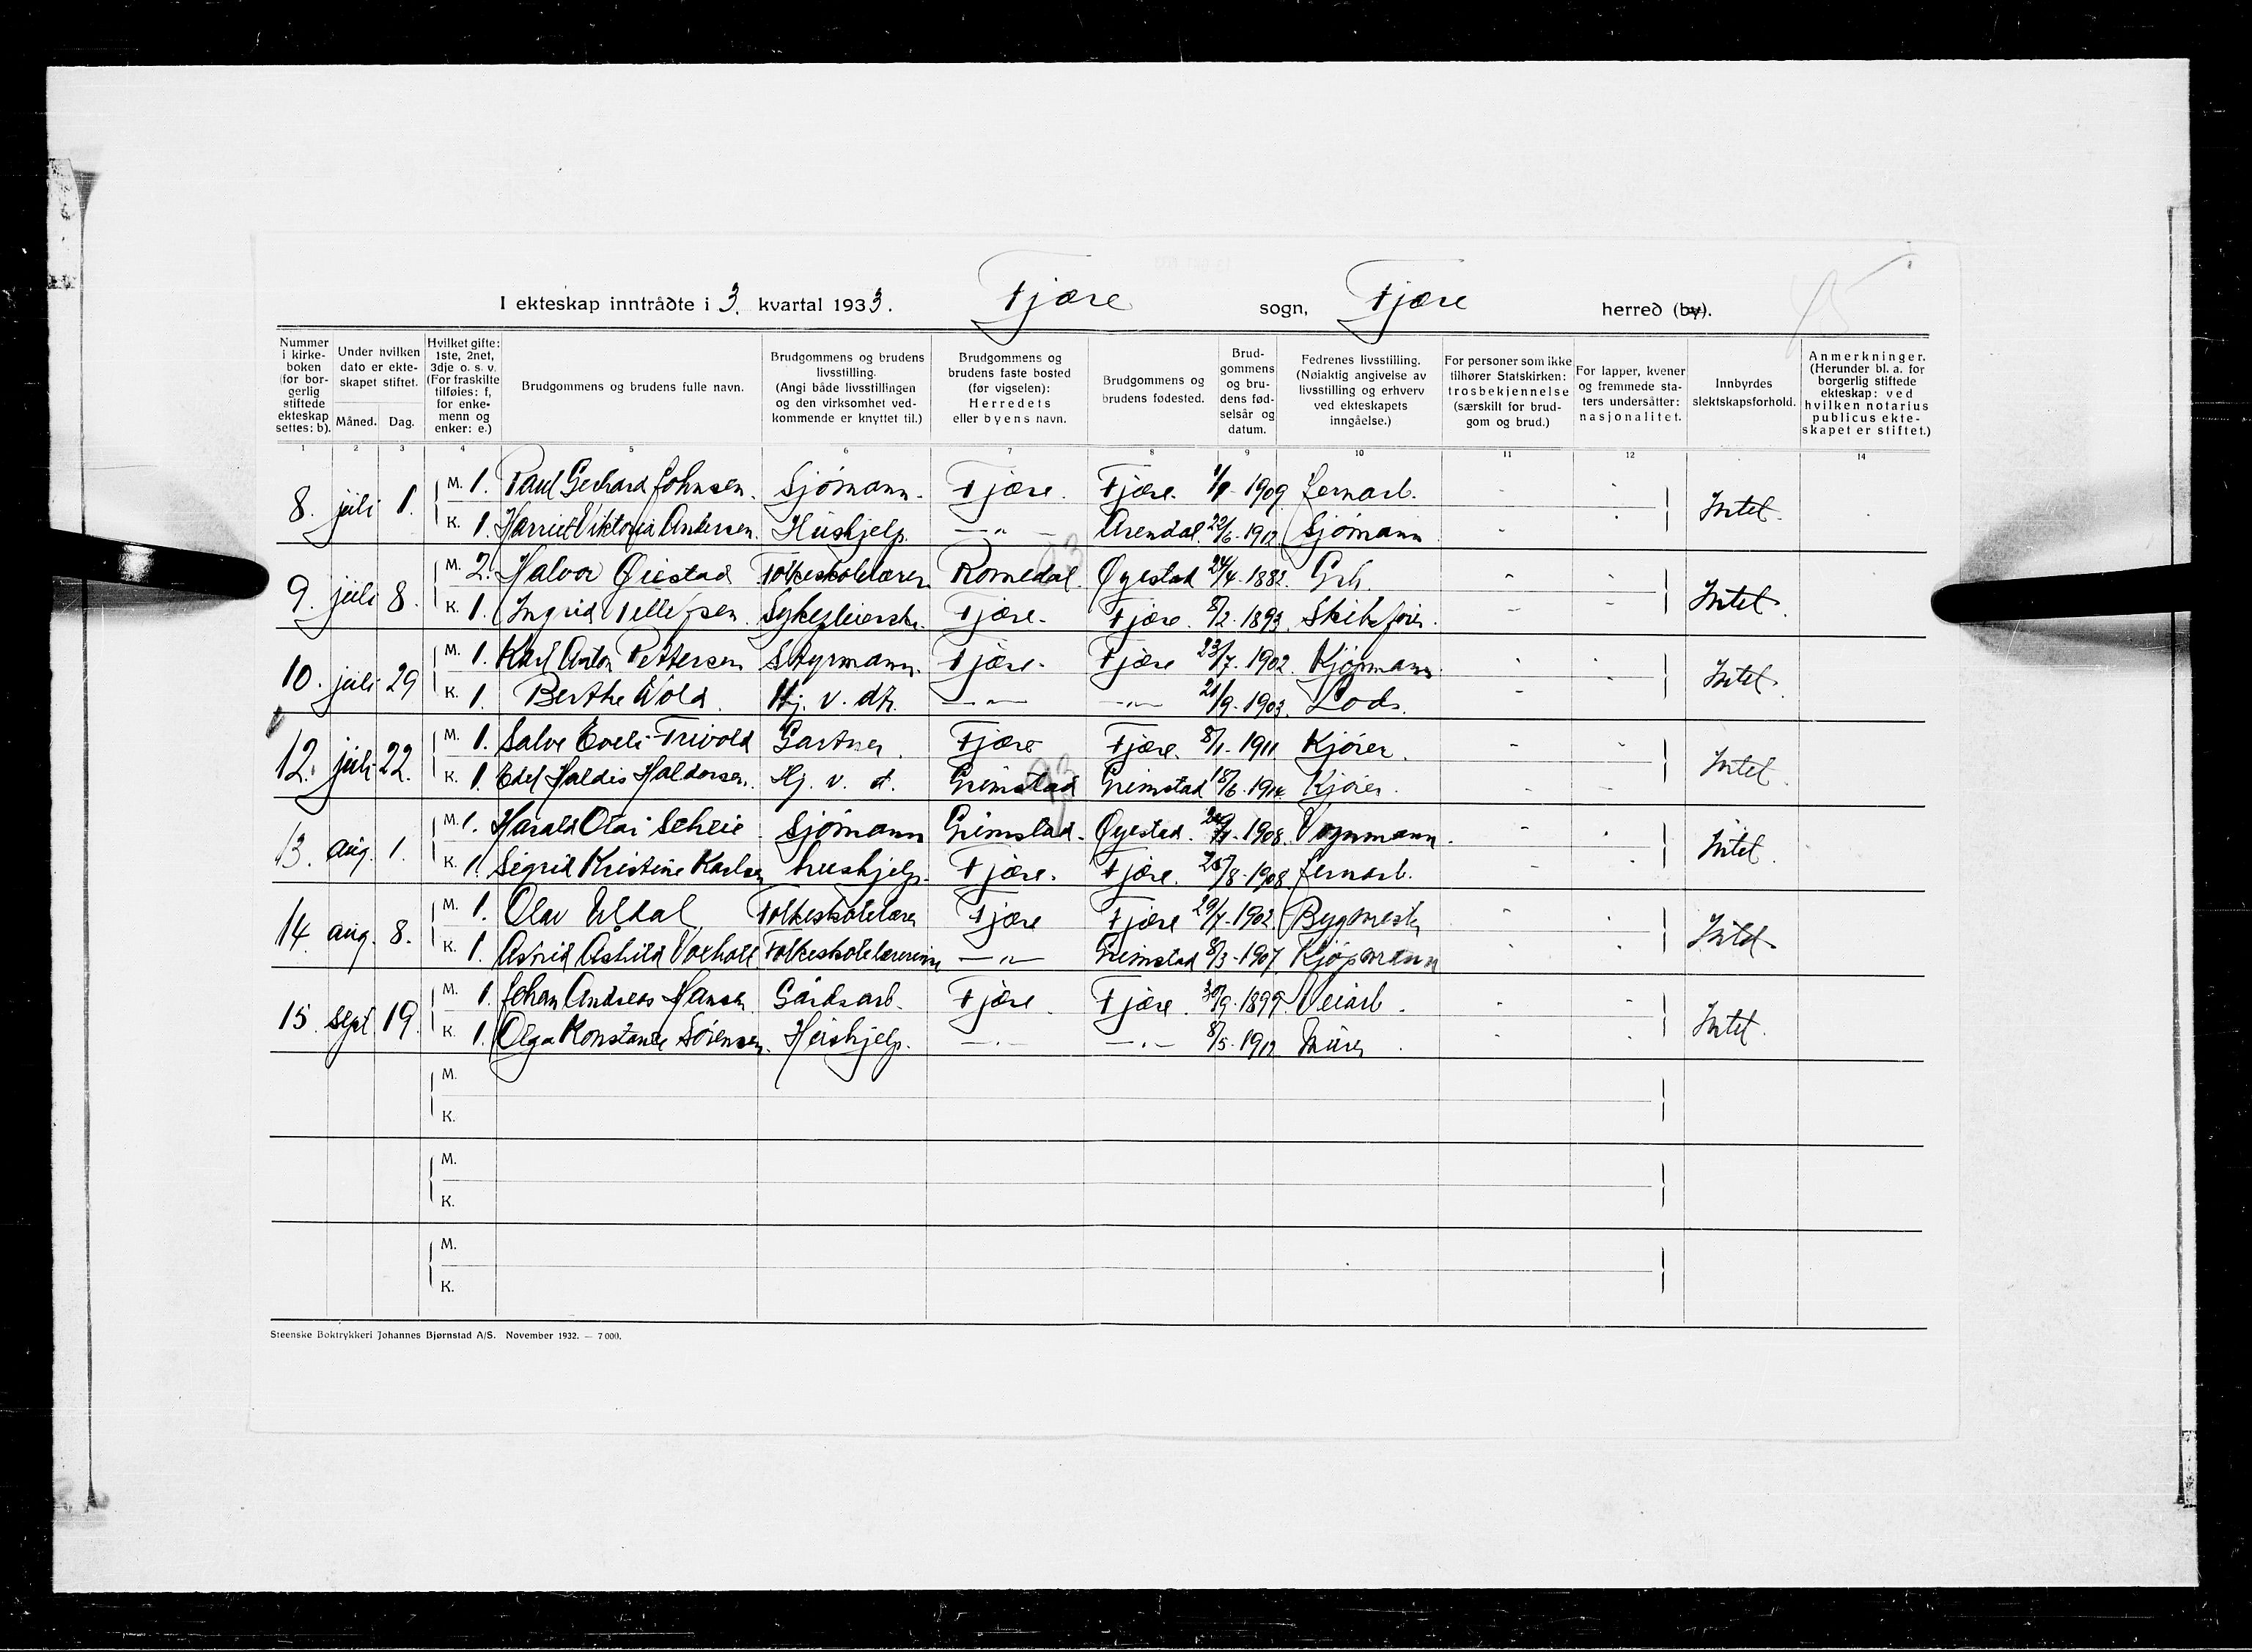 I ekteskap inntrådte i 3. kvartal 1933. Fjære sogn, Fjære herred (by).
Nummer i kirkeboken (for borgerlig stiftede ekteskap settes: b).
Under hvilken dato er ekteskapet stiftet.
Måned. Dag.
Hvilket gifte: 1ste, 2net, 3dje o. s. v. (For fraskilte tilføies: f, for enkemenn og enker: e.)
Brudgommens og brudens fulle navn.
Brudgommens og brudens livsstilling. (Angi både livsstillingen og den virksomhet vedkommende er knyttet til.)
Brudgommens og brudens faste bosted (før vigselen): Herredets eller byens navn.
Brudgommens og brudens fødested.
Brudgommens og brudens fødselsår og datum.
Fedrenes livsstilling. (Nøiaktig angivelse av livsstilling og erhverv ved ekteskapets inngåelse.)
For personer som ikke tilhører Statskirken: trosbekjennelse (særskilt for brudgom og brud.)
For lapper, kvener og fremmede staters undersåtter: nasjonalitet.
Innbyrdes slektskapsforhold.
Anmerkninger. (Herunder bl. a. for borgerlig stiftede ekteskap: ved hvilken notarius publicus ekteskapet er stiftet.)
1 2 3 4 5 6 7 8 9 10 11 12 14
8. juli 1. M. 1. Paul Gerhard Johnsen. Sjömann. Fjære. Fjære. 1909 Jernarb. Intet.
K. 1. Harriet Viktoria Andersen. Hushjelp. —"— Arendal. 22/6. 1912. Sjömann
9. juli 8. M. 2. Halvor Øiestad Folkeskolelærer Romedal. Øyestad 24/4. 1882. Grb. Intet.
K. 1. Ingrid Tellefsen. Sykepleierske. Fjære. Fjære. 8/2. 1893. Skibsfører.
10. juli 29 M. 1. Karl Anton Pettersen Styrmann. Fjære. Fjære 23/7. 1902. Kjöpmann. Intet.
K. 1. Berthe Wold. Hj. v. dt. —"— —"— 21/9. 1903. Lods.
12. juli 22. M. 1. Salve Trivold Gartner. Fjære Fjære. 8/1. 1911. Kjörer. Intet.
K. 1. Edel Haldis Haldorsen. Hj. v. d. Grimstad Grimstad 18/6. 1914. Kjörer.
13. aug. 1. M. 1. Harald Olai Scheie Sjömann Grimstad. Øyestad. 1908. Vognmann. Intet.
K. 1. Sigrid Kristine Karlsen hushjelp. Fjære. Fjære. 25/8. 1908. Jernarb.
14. aug. 8. M. 1. Olav Uldal Folkeskolelærer Fjære Fjære 1902. Bygmester Intet.
K. 1. Astrid Åshild Voxholt. Folkeskolelærerinne —"— Grimstad 8/3. 1907. Kjöpmann
15. sept. 19. M. 1. Johan Andreas Hansen. Gårdsarb. Fjære. Fjære. 30/9. 1899. Veiarb. Intet.
K. 1. Olga Konstanse Sörensen. Hushjelp. —"— —"— 8/5. 1912 Murer.
M.
K.
M.
K.
M.
K.
Steenske Boktrykkeri Johannes Bjørnstad A/S. November 1932. — 7 000.